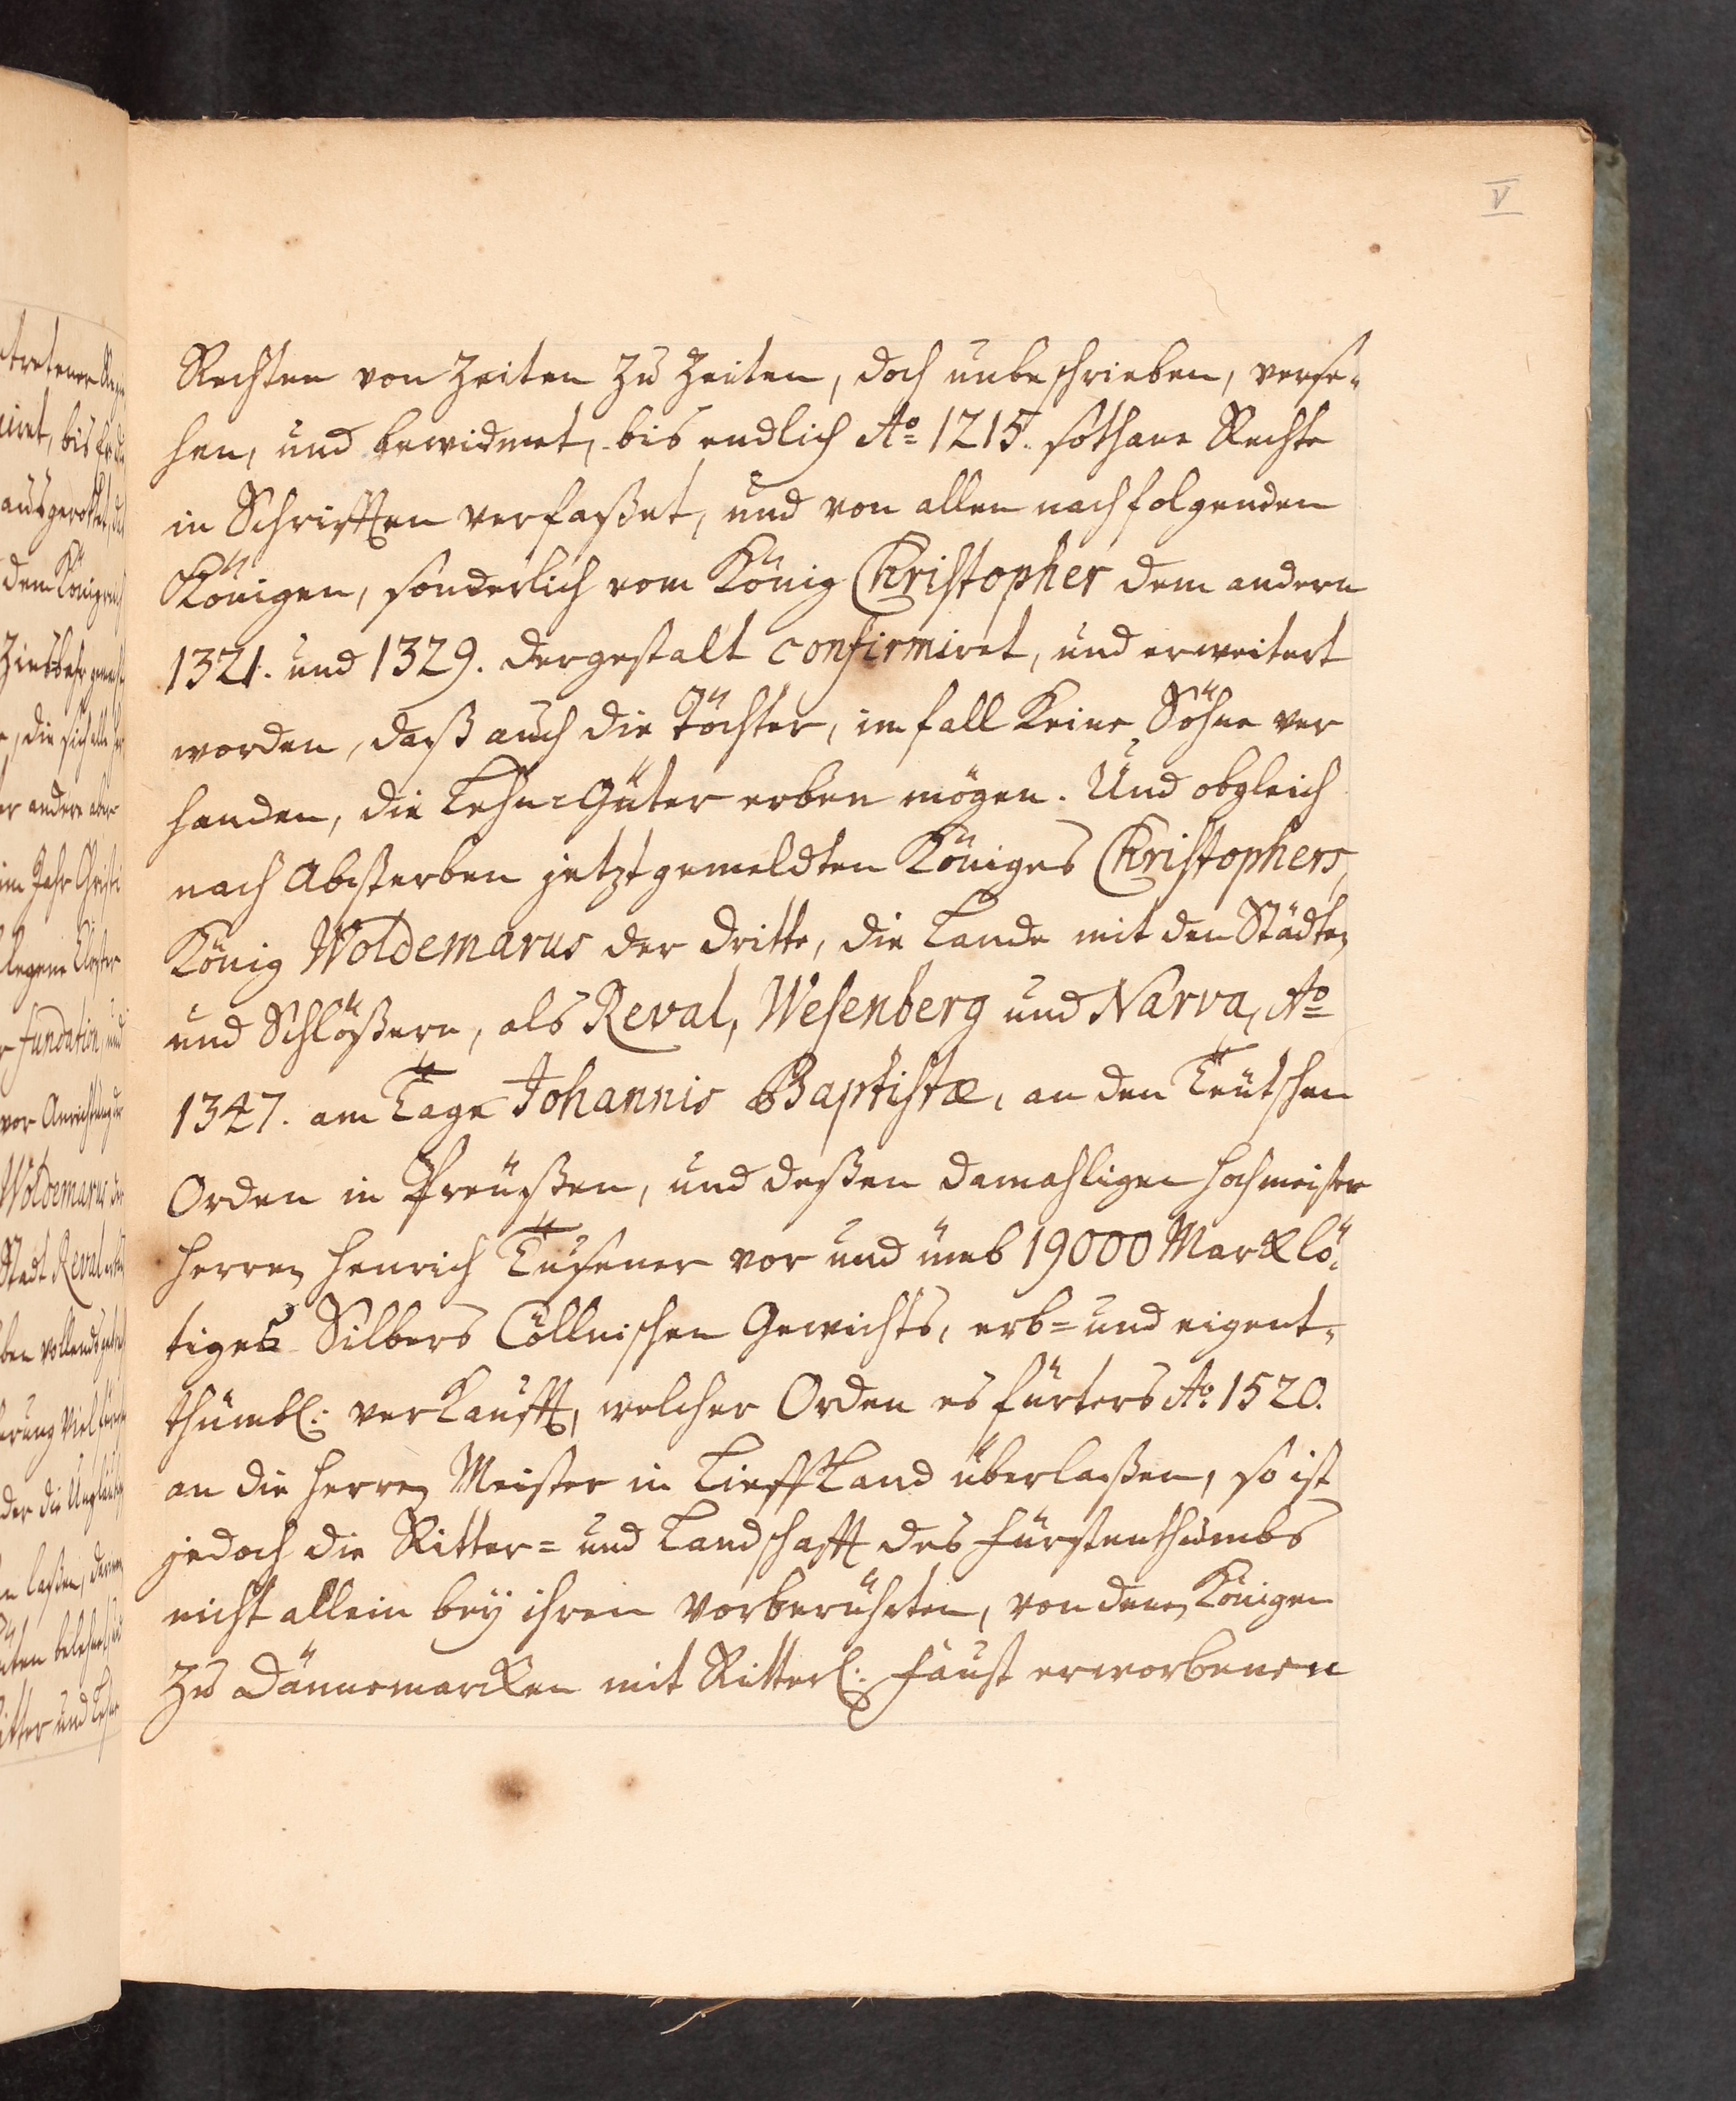 V
Rechten von Zeiten zu Zeiten, doch unbeschrieben, verse-
hen, und bewidmet, bis endlich Ao 1215. sothane Rechte
in Schrifften verfaßet, und von allen nachfolgenden
Königen, sonderlich vom König Christopher dem andern
1321. und 1329. dergestalt confirmiret, und erweitert
worden, daß auch die Töchter, im fall Keine Söhne ver
handen, die Lehn-Güter erben mögen. Und obgleich
nach Absterben jetztgemeldten Königes Christophers,
König Woldemarus der dritte, die Lande mit den Städten
und Schlößern, als Reval, Wesenberg und Narva, Ao
1347. am Tage Johannis Baptistæ, an den Teütschen
Orden in Preüßen, und deßen damahligen Hochmeister
Herren Henrich Tusener vor und umb 19000 Marck lö-
tiges Silbers Cöllnischen Gewichts, erb- und eigent-
thümbl: verkaufft, welcher Orden es fürters Ao 1520.
an die Herren Meister in Lieffland überlaßen, so ist
jedoch die Ritter- und Landschafft des Fürstenthumbs
nicht allein bey ihren vorberührten, von denen Königen
zu Dännemarcken mit Ritterl: Faust erworbenen